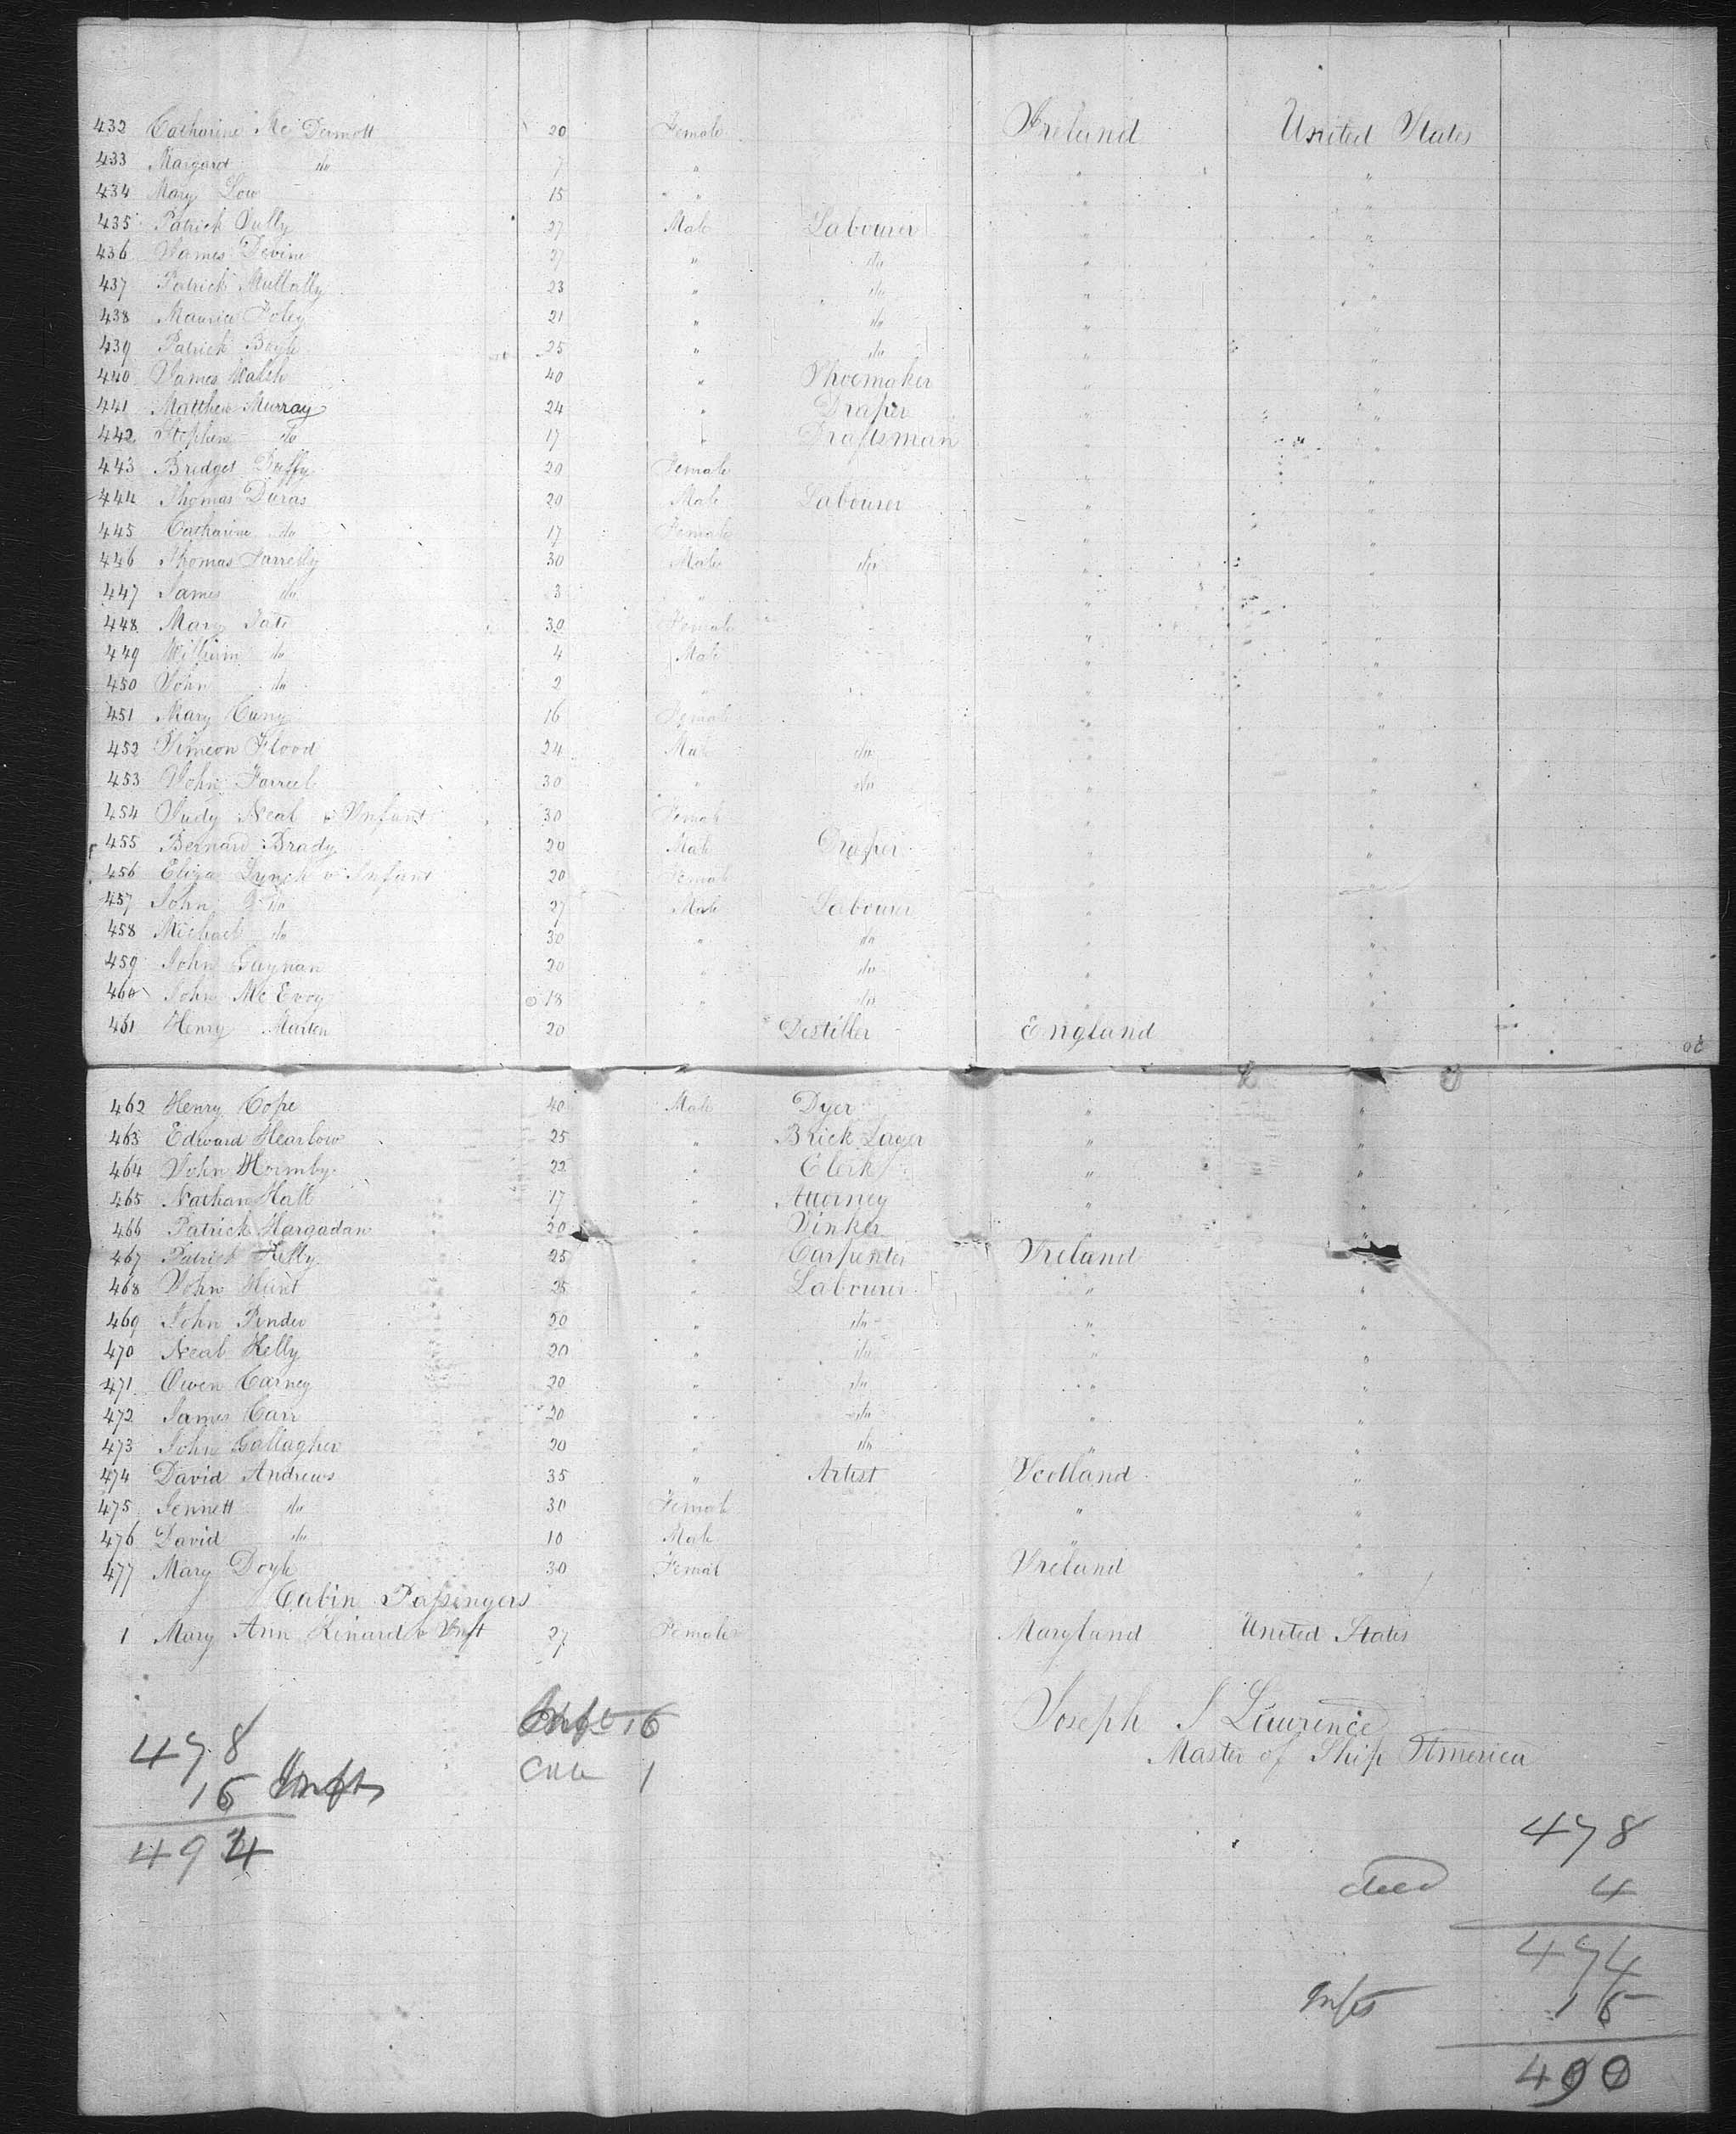 432 Catharine Mc Dermott 20 Female Ireland United States
433 Margard do 7 " " "
434 Mary Low 15 " " "
435 Patrick Tully 27 Male Labourer " "
436 James Devine 27 " do " "
437 Patrick Mullally 23 " do " "
438 Maurice Foley 21 " do " "
439 Patrick Boyle 25 " do " "
440 James Walsh 40 " Shoemaker " "
441 Matthew Murray 24 " Draper " "
442 Stephen do 17 " Draftsman " "
443 Bridget Duffy 20 Female " "
444 Thomas Duras 20 Male Labourer " "
445 Catharine do 17 Female " "
446 Thomas Farrelly 30 Male do " "
447 James do 3 " " "
448 Mary Tate 30 Female " "
449 William do 4 Male " "
450 John do 2 " " "
451 Mary Cuny 16 Female " "
452 Simeon Flood 24 Male do " "
453 John Farrel 30 " do " "
454 Judy Neal & Infant 30 Female " "
455 Bernard Brady 20 Male Draper " "
456 Eliza Lynch & Infant 20 Female " "
457 John do 27 Male Labourer " "
458 Michael do 30 " do " "
459 John Guynan 20 " do " "
460 John Mc Evoy 18 " do " "
461 Henry Marten 20 Destiller England "
462 Henry Cope 40 Male Dyer " "
463 Edward Hearlow 25 " Brick Layer " "
464 John Hormby 22 " Clerk " "
465 Nathan Hall 17 " Attorney " "
466 Patrick Hargadan 20 " Tinker "
467 Patrick Kelly 25 " Carpenter Ireland "
468 John Hunt 25 " Labourer " "
469 John Pinder 20 " do " "
470 Neal Kelly 20 " do " "
471 Owen Carney 20 " do " "
472 James Carr 20 " do " "
473 John Gallagher 20 " do " "
474 David Andrews 35 " Artist Scotland "
475 Jennett do 30 Female " "
476 David do 10 Male " "
477 Mary Doyle 30 Female Ireland "
Cabin Passengers
1 Mary Ann Kinard & Inft 27 Female Maryland United States
Joseph J Lawrence
Master of Ship America
Infts 16
1
478
16 Infts
494
478
died 4
474
Infts 16
490